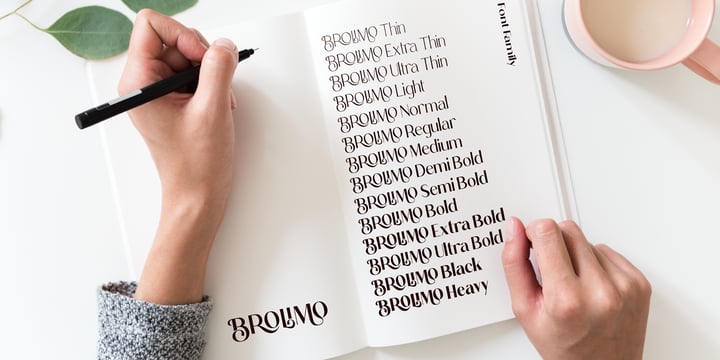 BROLIMO
BROLIMO Thin
BROLIMO Extra Thin
BROLIMO Ultra Thin
BROLIMO Light
BROLIMO Normal
BROLIMO Regular
BROLIMO Medium
BROLIMO Demi Bold
BROLIMO Semi Bold
BROLIMO Bold
BROLIMO Extra Bold
BROLIMO Ultra Bold
BROLIMO Black
BROLIMO Heavy
Font Family